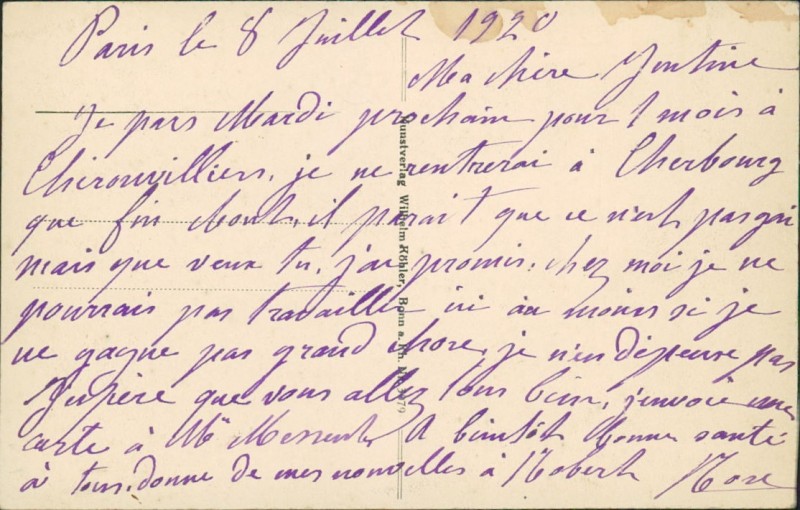 Paris le 8 Juillet 1920
Ma chère
Je pars Mardi prochain pour 1 mois à
je ne rentrerai à Cherbourg
que fin il parait que ce n'est pas gai
mais que veux tu, j'ai promis. chez moi je ne
pourrais pas travailler ici au moins si je
ne gagne pas grand chose, je n'en dépense pas
J'espère que vous allez tous bien, j'envoie une
carte à A bientôt Bonne santé
à tous. donne de mes nouvelles à Robert
Kunstverlag Wilhelm Köhler, Bonn a. Rh.